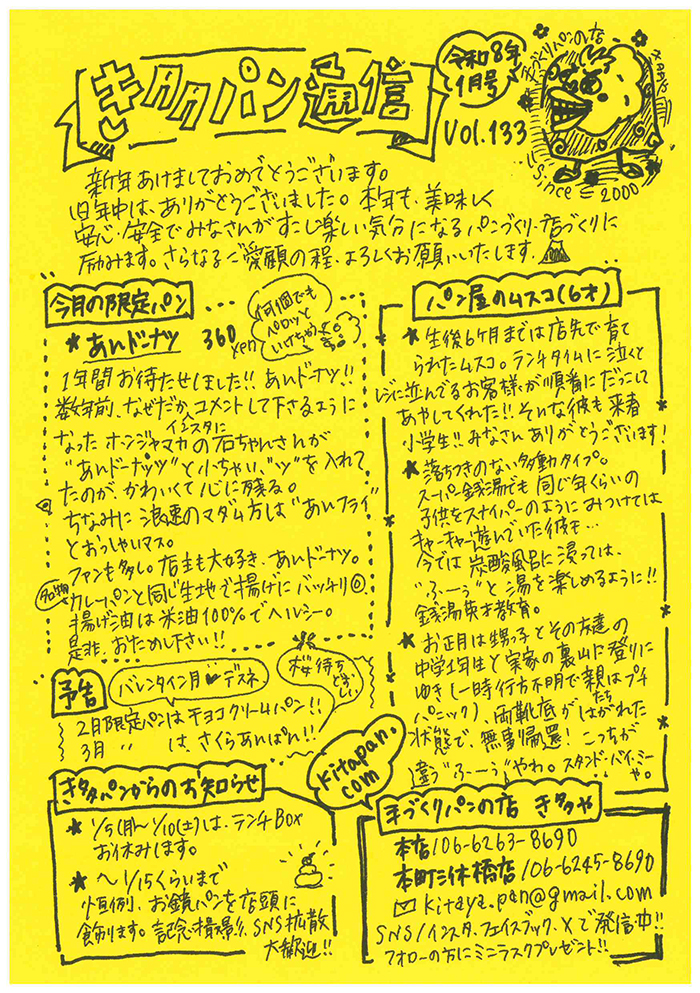 きタタパン通信
令和8年
1月号
VOL.133
手づくりパンの店
Since 2000
新年あけましておめでとうございます。
旧年中は、ありがとうございました。本年も、美味しく
安心・安全でみなさんがすこし楽しい気分になるパンづくり・店づくりに
励みます。さらなるご愛顧の程、よろしくお願いいたします。
今月の限定パン
★あんドーナツ 360 yen
何個でも
ペロッと
いけちゃう
1年間お待たせしました!! あんドーナツ!!
数年前、なぜだかインスタにコメントして下さるように
なったホンジャマカの石ちゃんさんが
"あんドーナッツ"と小ちゃい"ッ"を入れて
たのが、かわいくて心に残る。
ちなみに浪速のマダム方は"あんフライ"
とおっしゃいマス。
ファンも多し。店主も大好き、あんドーナツ。
名物カレーパンと同じ生地で揚げにバッチリ◎。
揚げ油は米油100%でヘルシー。
是非、おためし下さい!!
予告
バレンタイン月♥デスネ
桜待ち
どおしい
2月限定パンはチョコクリームパン!!
3月 〃 は、さくらあんぱん!!
パン屋のムスコ(6才)
★生後6ヶ月までは店先で育て
られたムスコ。ランチタイムに泣くと
レジに並んでるお客様が順番にだっこして
あやしてくれた!! そんな彼も来春
小学生!! みなさんありがとうございます!
★落ちつきのない多動タイプ。
スーパー銭湯でも同じ年くらいの
子供をスナイパーのようにみつけては
キャーキャー遊んでいた彼も…
今では炭酸風呂に浸っては、
"ふーぅ"と湯を楽しめるように!!
銭湯英才教育。
★お正月は甥っ子とその友達の
中学1年生と実家の裏山に登りに
ゆきし一時行方不明で親たちはプチ
パニック)、両靴底がはがれた
状態で、無事帰還! こっちが
違う"ふーぅ"やわ。スタンド・バイ・ミー
や。
kitapan.
com
きタタパンからのお知らせ
★1/5(月)〜1/10(土)は、ランチBox
お休みします。
★〜1/15くらいまで
恒例、お鏡パンを店頭に
飾ります。記念撮影!! SNS拡散
大歓迎!!
手づくりパンの店 き多や
本店/06-6263-8690
本町三休橋店/06-6245-8690
✉ kitaya.pan@gmail.com
SNS/インスタ、フェイスブック、Xで発信中!!
フォローの方にミニラスクプレゼント!!